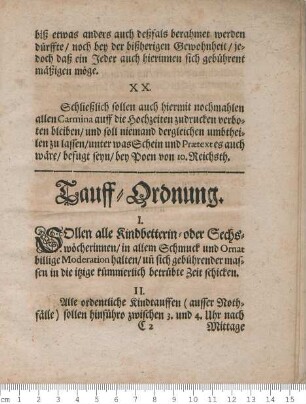 biß etwas anders auch deßfals berahmet werden
dürffte/ noch bey der bißherigen Gewohnheit/ je-
doch daß ein Jeder auch hierinnen sich gebührent
mäßigen möge.
XX.
Schließlich sollen auch hiermit nochmahlen
allen Carmina auff die Hochzeiten zudrucken verbo-
ten bleiben/ und soll niemand dergleichen umbthei-
len zu lassen/ unter was Schein und Prætext es auch
wäre/ befugt seyn/ bey Poen von 10. Reichsth.
Tauff-Ordnung.
I.
SOllen alle Kindbetterin- oder Sechs-
wöcherinnen/ in allem Schmuck und Ornat
billige Moderation halten/ uñ sich gebührender mas-
sen in die itzige kümmerlich betrübte Zeit schicken.
II.
Alle ordentliche Kindtauffen (ausser Noth-
fälle) sollen hinführo zwischen 3. und 4. Uhr nach
C 2 Mittage
cm 1 2 3 4 5 6 7 8 9 10 11 12 13 14 15